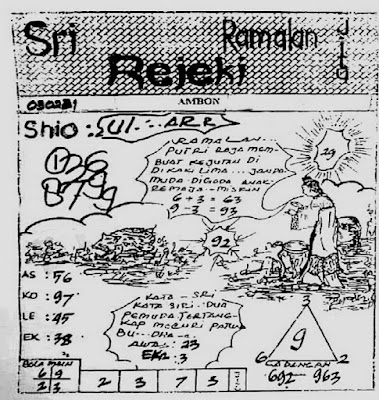 Sri
Ramalan
Rejeki
Jig
AMBON
Shio:
RAMALAN...
PUTRI RAJA MEM-
BUAT KEJUTAN DI
DI KAKI LIMA... JANDA
MUDA DIGODA ANAK
REMAJA - MISKIN
6 + 3 = 63
9 - 3 = 93
29
92
AS : 56
KO : 97
LE : 45
EK : 38
KATA - SRI
KATA SIRI - DUA
PEMUDA TERTANG-
KAP MENCURI PATUNG
BU-DHA-
AWAS : 23
EKR : 3
3
9
6 2
LADENGAN
692 - 963
BOLA MAIN
6 9
2 3
2 3 7 3